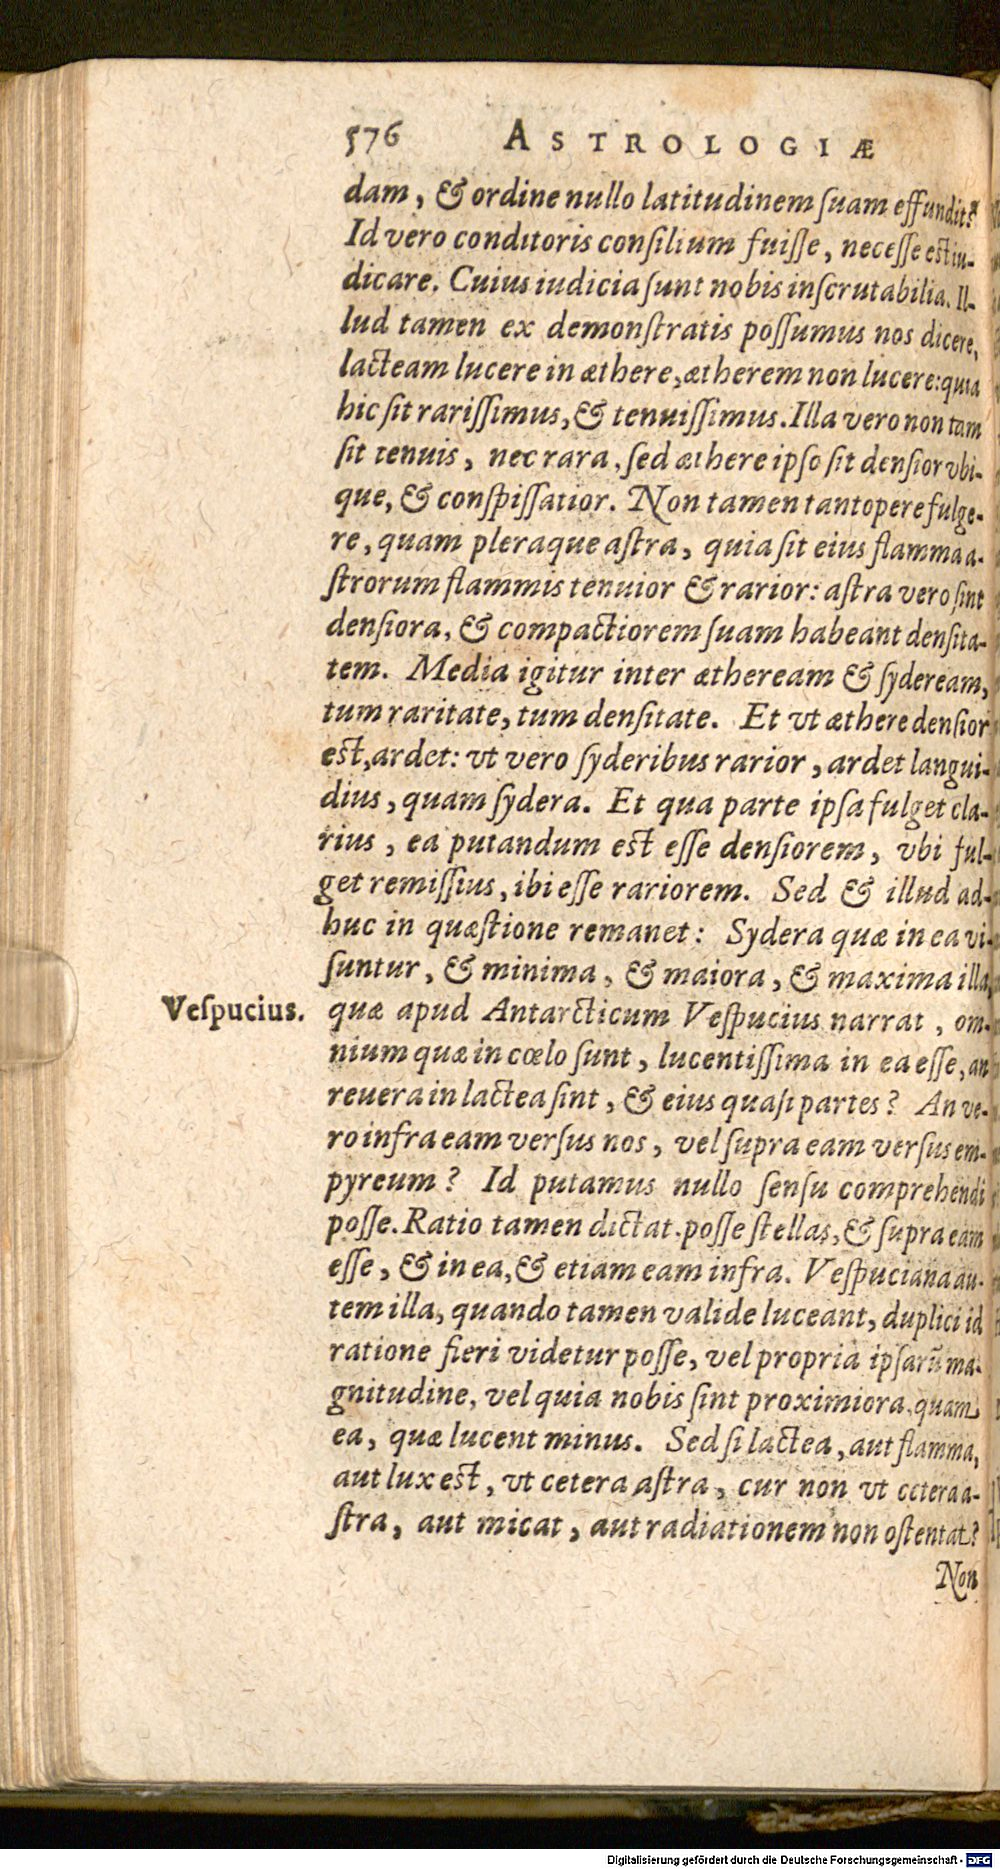 576 ASTROLOGIÆ
dam, & ordine nullo latitudinem ſuam effundit?
Id vero conditoris conſilium fuiſſe, neceſſe est iu-
dicare. Cuius iudicia ſunt nobis inſcrutabilia. Il-
lud tamen ex demonſtratis poſſumus nos dicere,
lacteam lucere in æthere, ætherem non lucere: quia
hic ſit rariſſimus, & tenuiſſimus. Illa vero non tam
ſit tenuis, nec rara, ſed æthere ipſo ſit denſior vbi-
que, & conſpiſſatior. Non tamen tantopere fulge-
re, quam pleraque aſtra, quia ſit eius flamma a-
ſtrorum flammis tenuior & rarior: aſtra vero ſint
denſiora, & compactiorem ſuam habeant denſita-
tem. Media igitur interætheream & ſydereAM,
tum raritate, tum denſitate. Et vt æthere denſior
est, ardet: vt vero ſyderibus rarior, ardet langui-
dius, quam ſydera. Et qua parte ipſa fulget cla-
rius, ea putandum est eſſe denſiorem, vbi ful-
get remiſſius, ibi eſſe rariorem. Sed & illud ad-
huc in quæſtione remanet: Sydera quæ in ea vi-
ſuntur, & minima, & maiora, & maxima illa,
Veſpucius.
quæ apud Antarcticum Veſpucius narrat, om-
nium quæ in cœlo ſunt, lucentiſſima in ea eſſe, an
reuera in lactea ſint, & eius quaſi partes? An ve-
ro infra eam verſus nos, vel ſupra eam verſus em-
pyreum? Id putamus nullo ſenſu comprehendi
poſſe. Ratio tamen dictat. poſſe ſtellas, & ſupra eam
eſſe, & in ea, & etiam eam infra. Veſpuciana au-
tem illa, quando tamen valide luceant, duplici id
ratione fieri videtur poſſe, vel propria ipſarũ ma-
gnitudine, vel quia nobis ſint proximiora, quam
ea, quæ lucent minus. Sed ſi lactea, aut flamma,
aut lux est, vt cetera aſtra, cur non vt cetera a-
ſtra, aut micat, aut radiationem non oſtentat?
Non
Digitalisierung gefördert durch die Deutsche Forschungsgemeinschaft - DFG